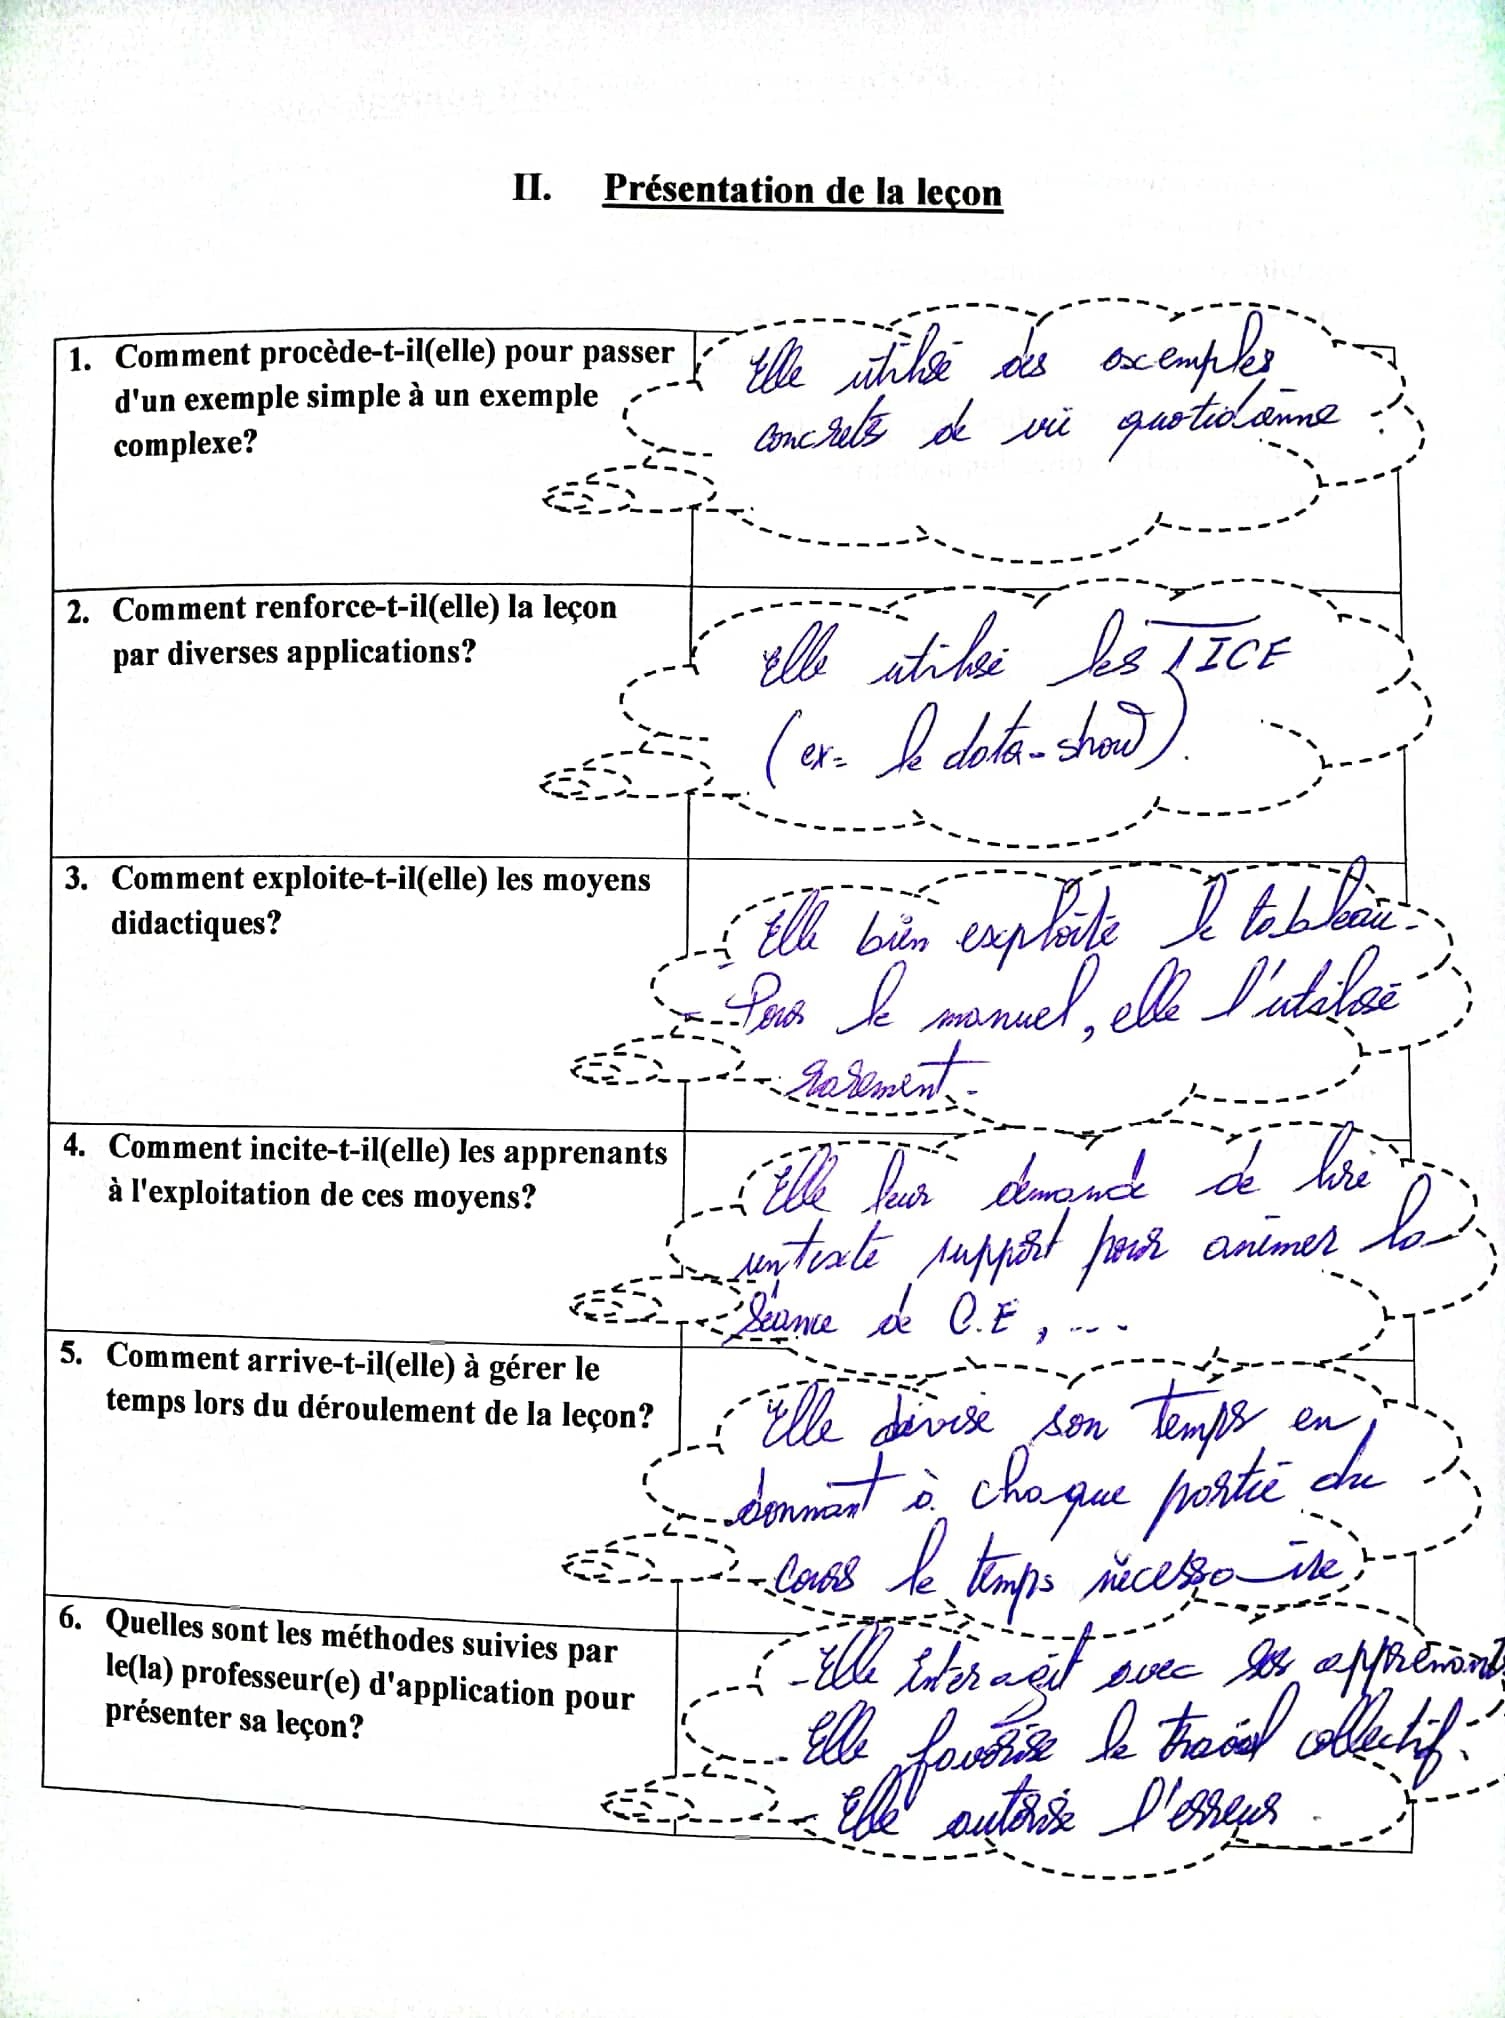 II. Présentation de la leçon
1. Comment procède-t-il(elle) pour passer
d'un exemple simple à un exemple
complexe?
Elle utilise des exemples
concrets de vie quotidienne.
2. Comment renforce-t-il(elle) la leçon
par diverses applications?
Elle utilise les TICE
(ex= le data-show).
3. Comment exploite-t-il(elle) les moyens
didactiques?
Elle bien exploite le tableau.
Pour le manuel, elle l'utilise
rarement.
4. Comment incite-t-il(elle) les apprenants
à l'exploitation de ces moyens?
Elle leur demande de lire
un texte support pour animer la
séance de C.E, ...
5. Comment arrive-t-il(elle) à gérer le
temps lors du déroulement de la leçon?
Elle divise son temps en
donnant à chaque partie du
cours le temps nécessaire
6. Quelles sont les méthodes suivies par
le(la) professeur(e) d'application pour
présenter sa leçon?
- Elle interagit avec les apprenants
- Elle favorise le travail collectif.
- Elle autorise l'erreur.